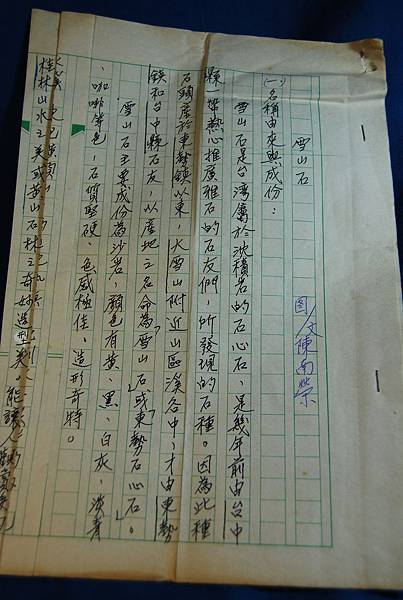 雪山石
圖/文 陳南榮
(一)名稱由來與成份:
雪山石是台灣屬於沈積岩的石心石,是幾年前由台中
縣一帶熱心推廣雅石的石友們,所發現的石種。因為此種
石頭產於東勢鎮以東,大雪山附近山區溪谷中,才由東勢
鎮和台中縣石友,以產地之名命為「雪山石」或「東勢石心石」。
雪山石主要成份為沙岩,顏色有黃、黑、白灰,淡青
、咖啡等色,石質堅硬、色感極佳,造形奇特。
桂林山水之美或黃山石林之奇妙造型